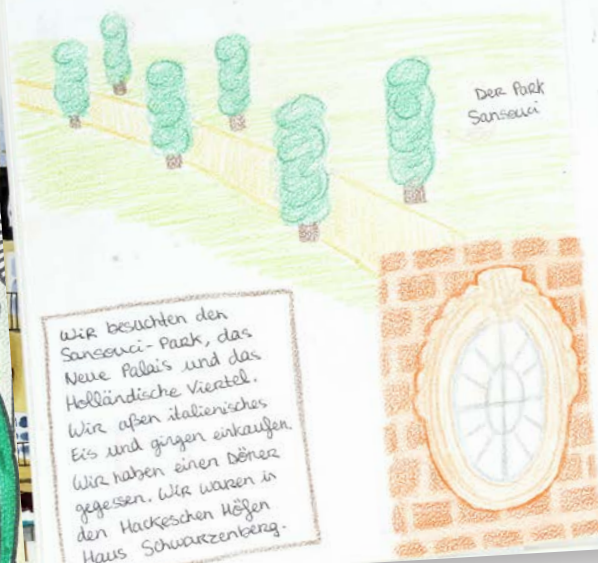 Der Park
Sansouci
Wir besuchten den
Sansouci-Park, das
Neue Palais und das
Holländische Viertel.
Wir aßen italienisches
Eis und gingen einkaufen
Wir haben einen Döner
gegessen. Wir waren in
den Hackeschen Höfen
Haus Schwarzenberg.